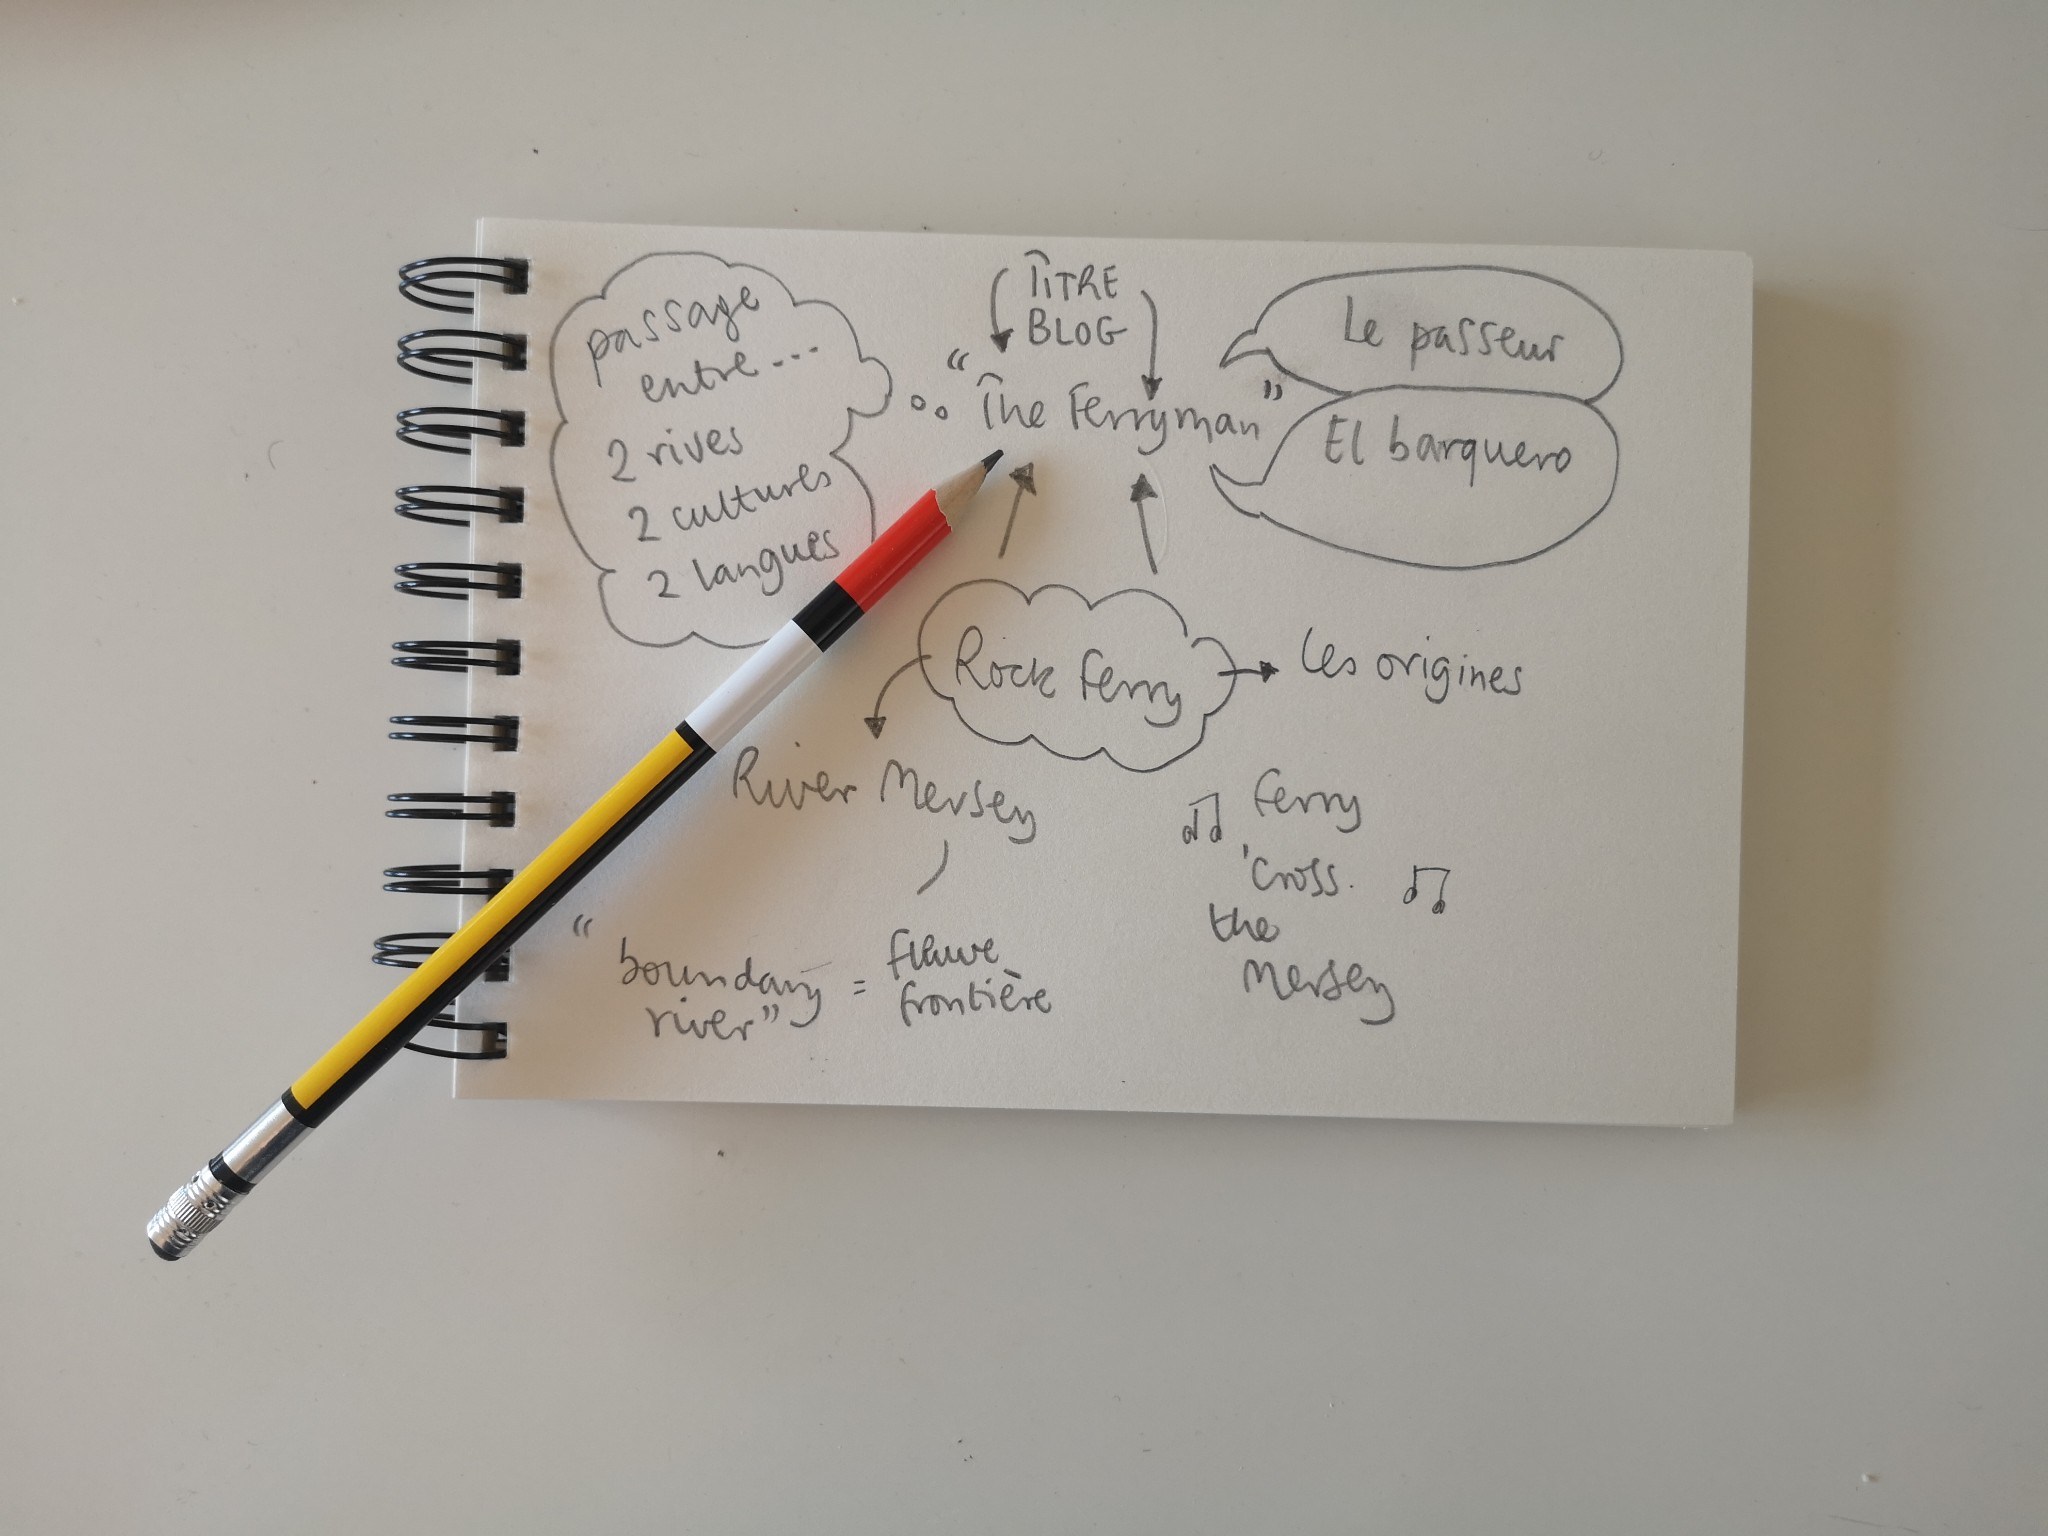 passage
entre...
2 rives
2 cultures
2 langues
TITRE
BLOG
"The Ferryman"
Le passeur
El barquero
Rock Ferry
Les origines
River Mersey
"boundary
river"
= fleuve
frontière
Ferry
'Cross
the
Mersey